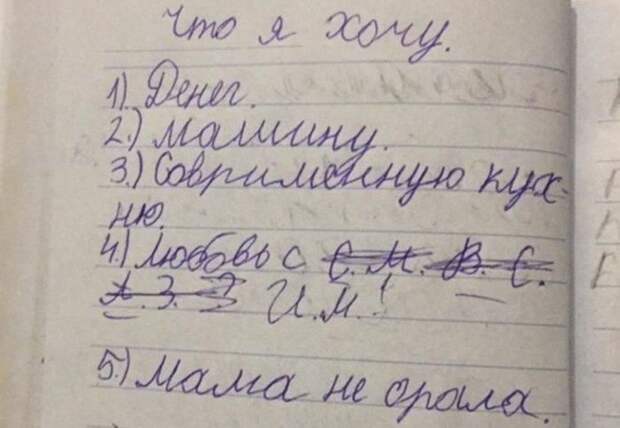 Что я хочу.
1). Денег.
2.) Машину.
3.) Соврименную кух-
ню.
4.) Любовь с С. М. В. С.
А. З. З И.М.!
5.) Мама не орала.